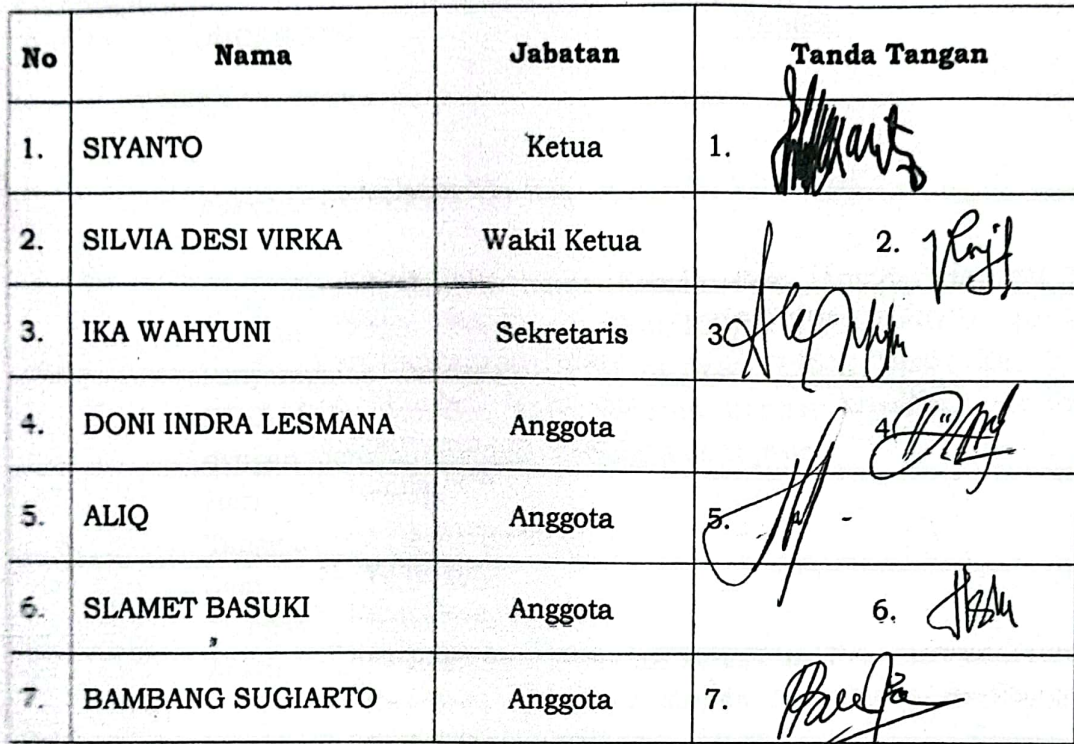 No Nama Jabatan Tanda Tangan
1. SIYANTO Ketua 1.
2. SILVIA DESI VIRKA Wakil Ketua 2.
3. IKA WAHYUNI Sekretaris 3
4. DONI INDRA LESMANA Anggota 4
5. ALIQ Anggota 5.
6. SLAMET BASUKI Anggota 6.
7. BAMBANG SUGIARTO Anggota 7.